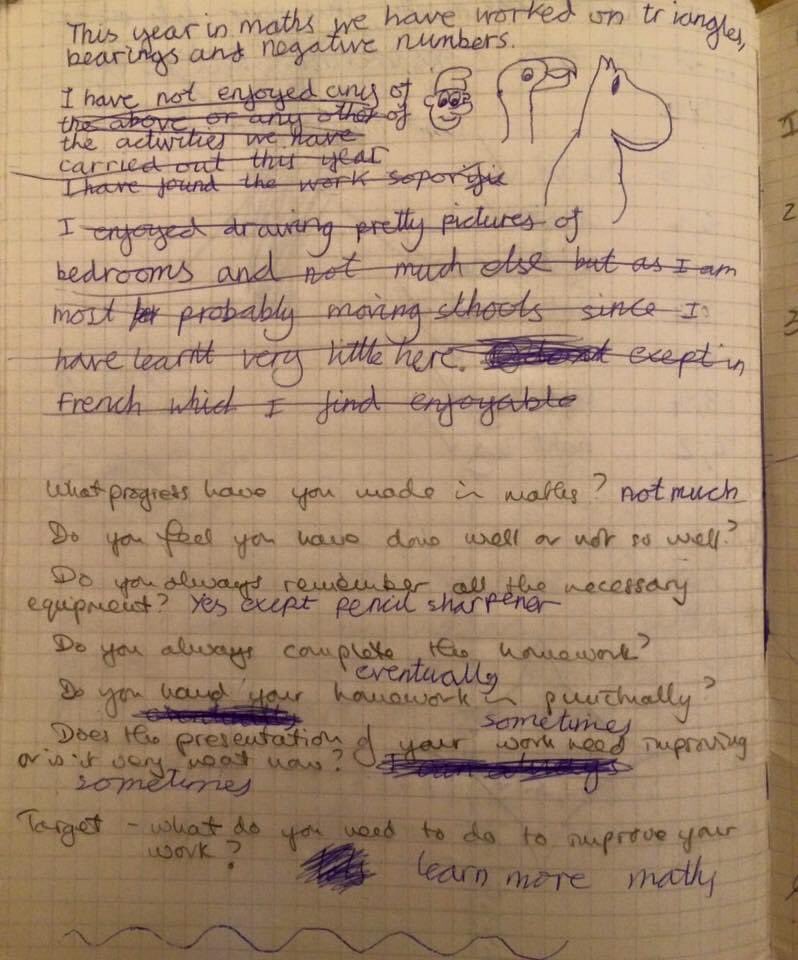 This year in maths we have worked on triangles,
bearings and negative numbers.
I have not enjoyed any of
the above or any other of
the activities we have
carried out this year
I have found the work soporific
I enjoyed drawing pretty pictures of
bedrooms and not much else but as I am
most probably moving schools since I
have learnt very little here. exept in
French which I find enjoyable
What progress have you made in maths? not much
Do you feel you have done well or not so well?
Do you always remember all the necessary
equipment? Yes exept pencil sharpener
Do you always complete the homework?
eventually
Do you hand your homework in punctually?
eventually
sometimes
Does the presentation of your work need improving
or is it very neat now?
sometimes
Target - what do you need to do to improve your
work?
learn more maths
1
2
3